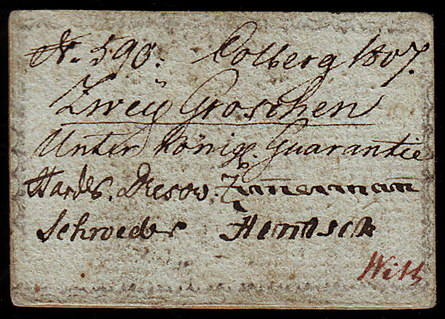 N. 590. Colberg 1807.
Zwey Groschen
Unter Königl. Guarantie
Dresow. Zimmermann
Schroeder Hentsch